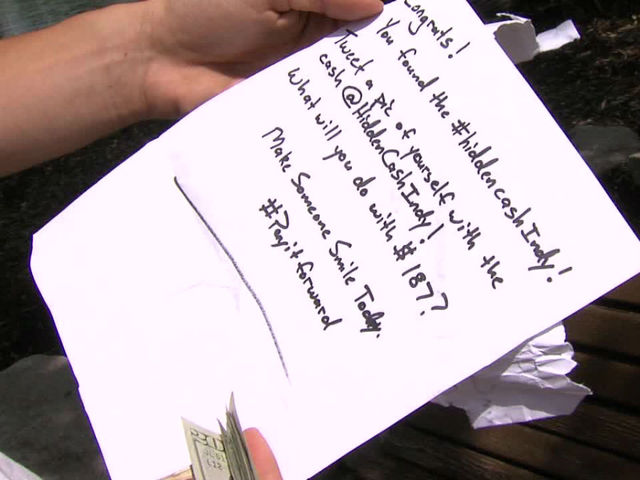 Congrats!
You found the #hiddencashIndy!
Tweet a pic of yourself with the
cash @HiddenCashIndy!
What will you do with $187?
Make Someone Smile Today.
#Payitforward